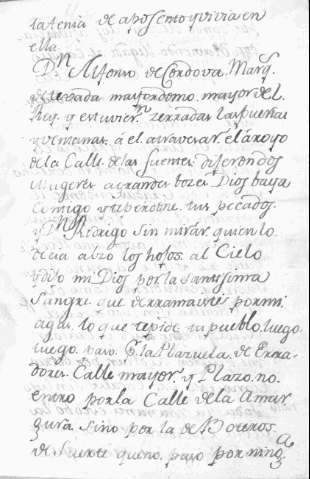 la tenia de aposento y vivia en
ella
D.n Alfonso de Cordova Marq.s
de mayordomo mayor del
Rey y estuvier.n zerradas las puertas
y ventanas á el atravesar el aroyo
de la Calle de las fuentes diferon dos
Mugeres a grandes bozes Dios baya
Contigo y te perdone tus pecados
y D.n Rodrigo sin mirar quien lo
decia alzo los hojos al Cielo
y dijo mi Dios por la santissima
Sangre que derramaste por mi
agas lo que te pide tu pueblo, luego
luego paso Plazuela de Erra
dores Calle mayor y Plaza no
entro por la Calle de la Amar
gura Sino por la de Boteros
de Suerte que no paso por ning.a